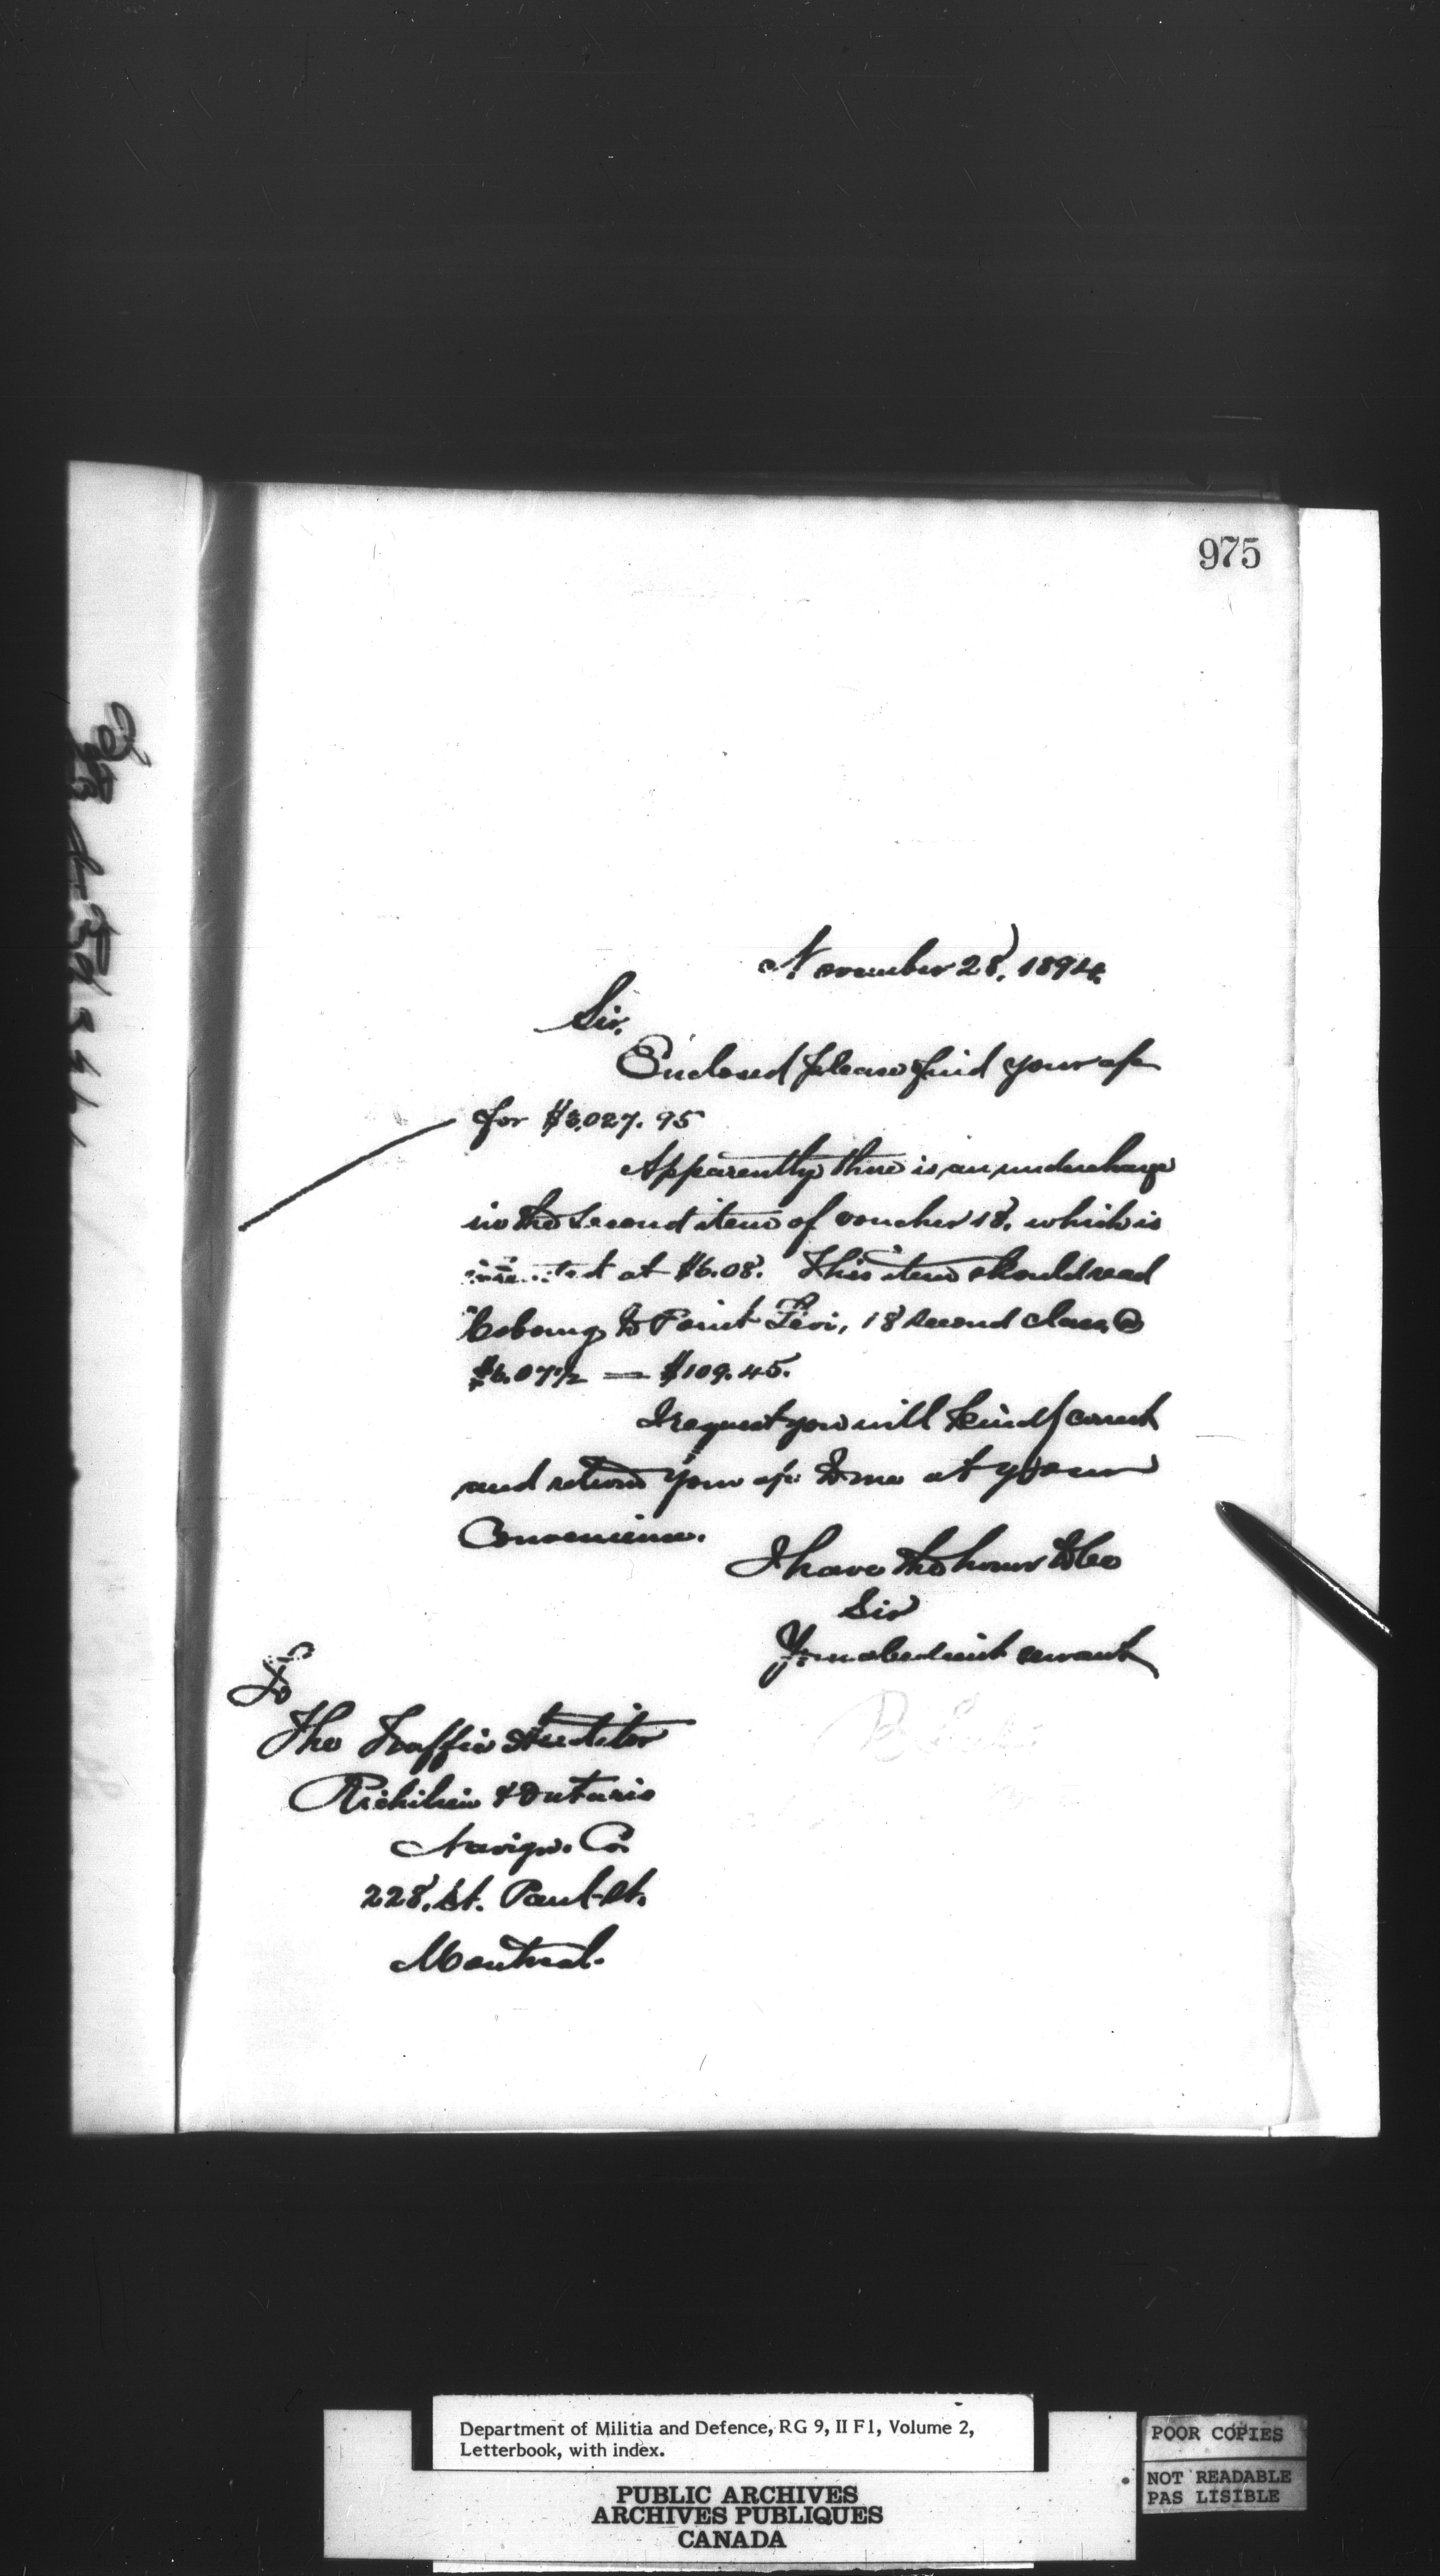 975
November 28, 1894.
Sir,
Enclosed please find your a/c
for $3,027.95
Apparently there is an undercharge
in the second item of voucher 18, which is
at $6.08. This item should read
Cobourg to Point Levi, 18 second class @
$6.07½ = $109.45.
I request you will kindly correct
and return your a/c to me at your
Convenience.
I have the honor to be
Sir
Your obedient servant
To
The Traffic Auditor
Richilieu & Ontario
Navign. Co.
228, St. Paul St.
Montreal.
Department of Militia and Defence, RG 9, II F1, Volume 2,
Letterbook, with index.
PUBLIC ARCHIVES
ARCHIVES PUBLIQUES
CANADA
POOR COPIES
NOT READABLE
PAS LISIBLE